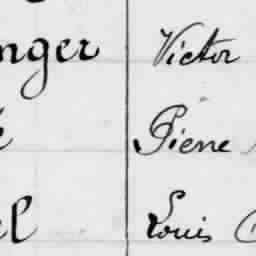 nger Victor
Pierre
el Louis